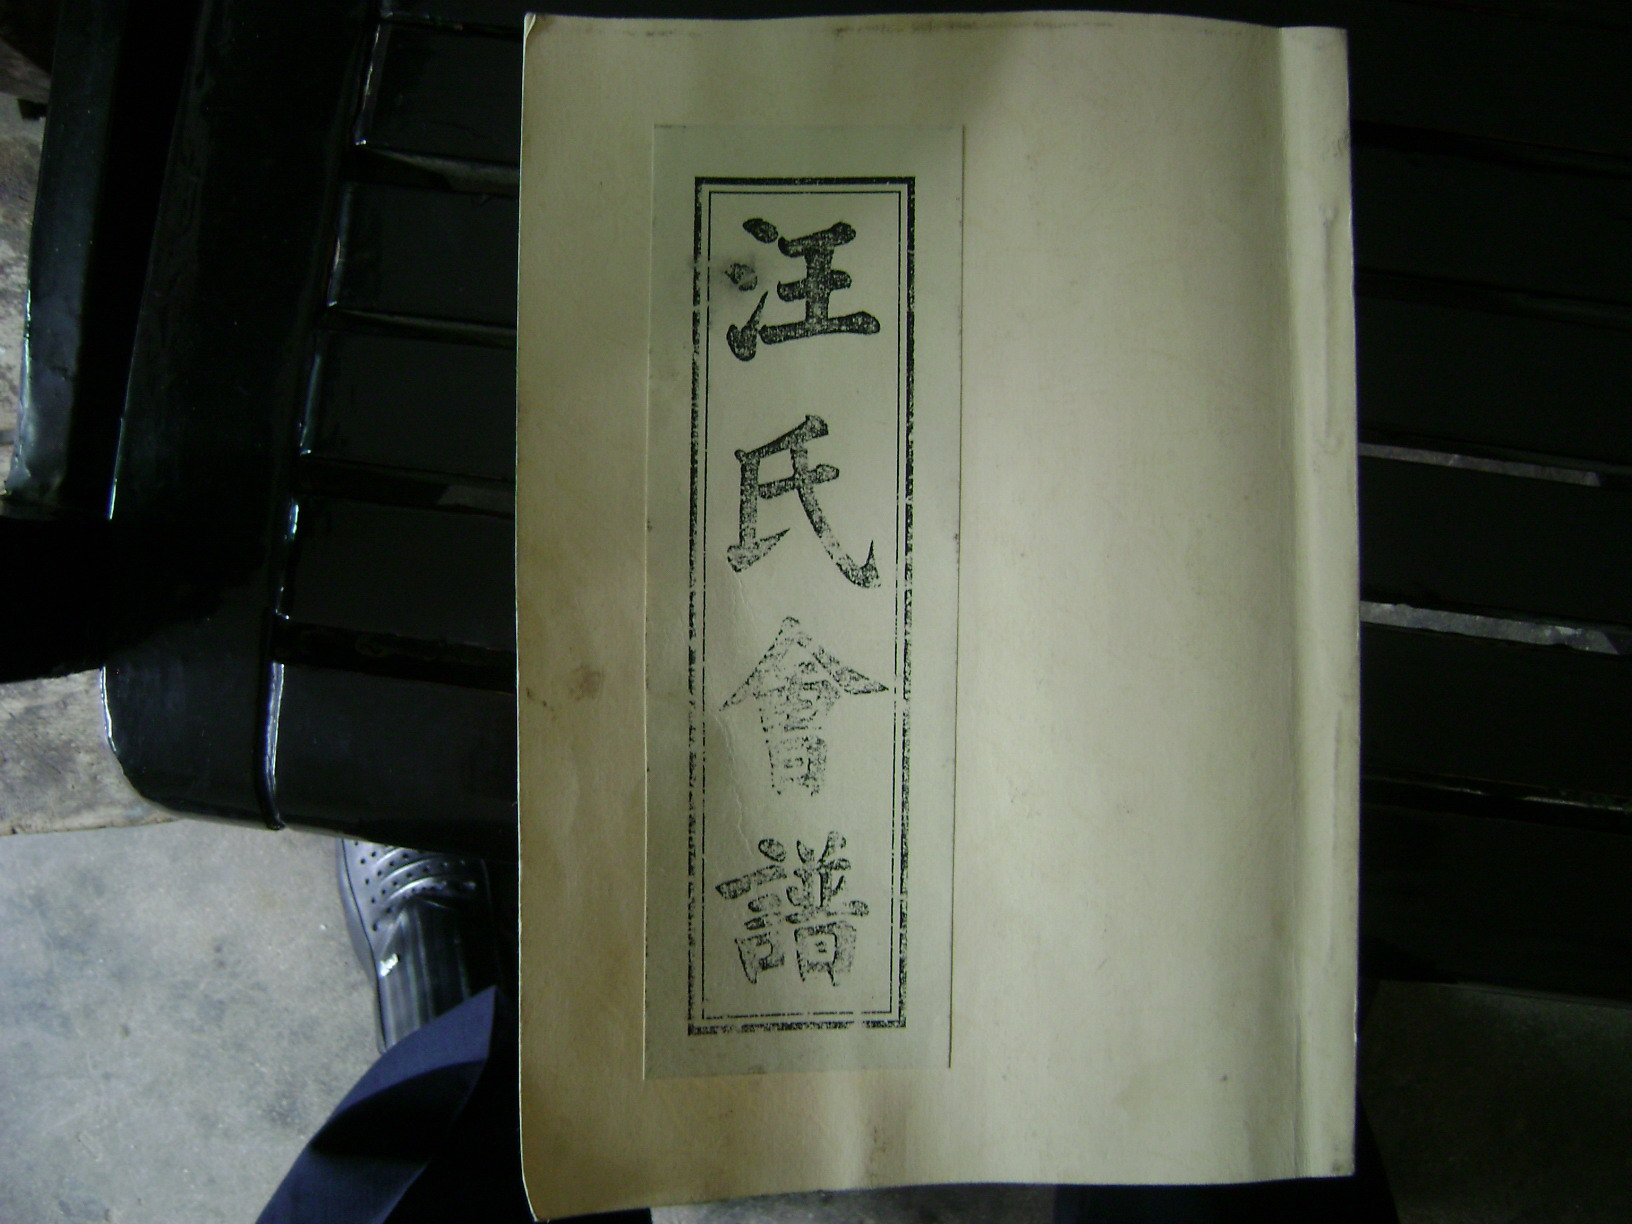 汪氏會譜